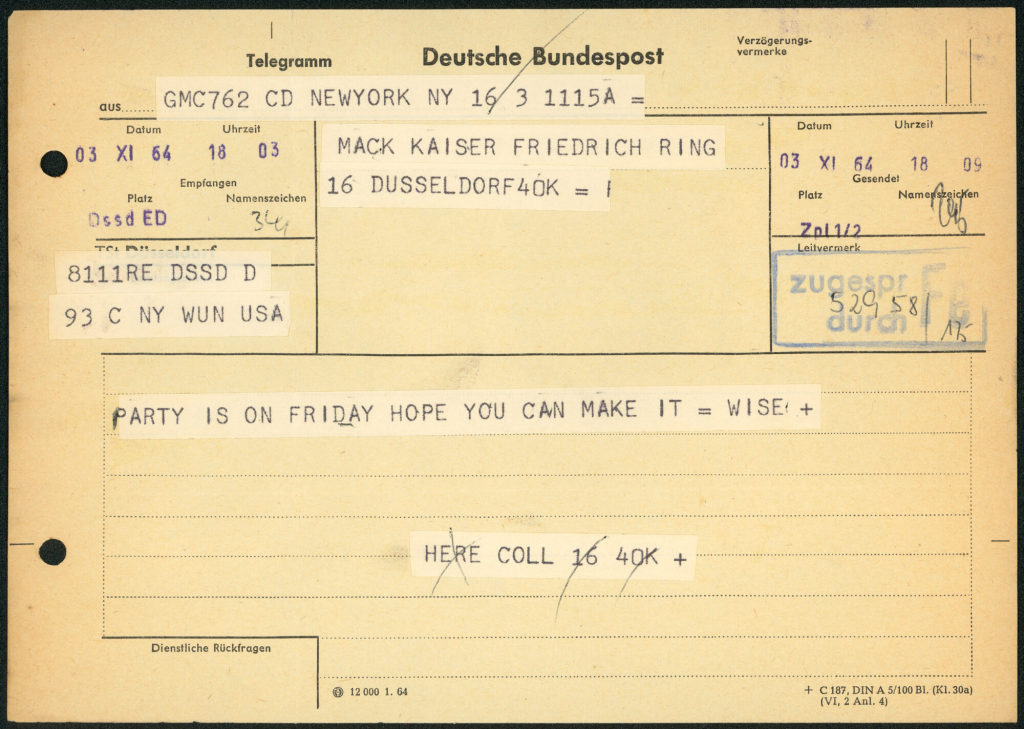 Telegramm
Deutsche Bundespost
Verzögerungs-
vermerke
aus
GMC762 CD NEWYORK NY 16 3 1115A =
Datum Uhrzeit
03 XI 64 18 03
Empfangen
Platz Namenszeichen
Dssd ED
TSt Düsseldorf
8111RE DSSD D
93 C NY WUN USA
MACK KAISER FRIEDRICH RING
16 DUSSELDORF4OK =
Datum Uhrzeit
03 XI 64 18 09
Gesendet
Platz Namenszeichen
Zpl 1/2
Leitvermerk
zugespr
durch
Fe
529 58
PARTY IS ON FRIDAY HOPE YOU CAN MAKE IT = WISE +
HERE COLL 16 4OK +
Dienstliche Rückfragen
12 000 1. 64
+ C 187, DIN A 5/100 Bl. (Kl. 30a)
(VI, 2 Anl. 4)